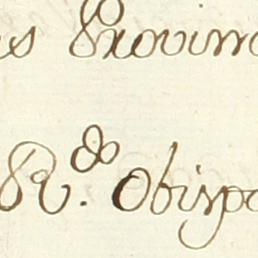 es Provinc
R.do Obispo